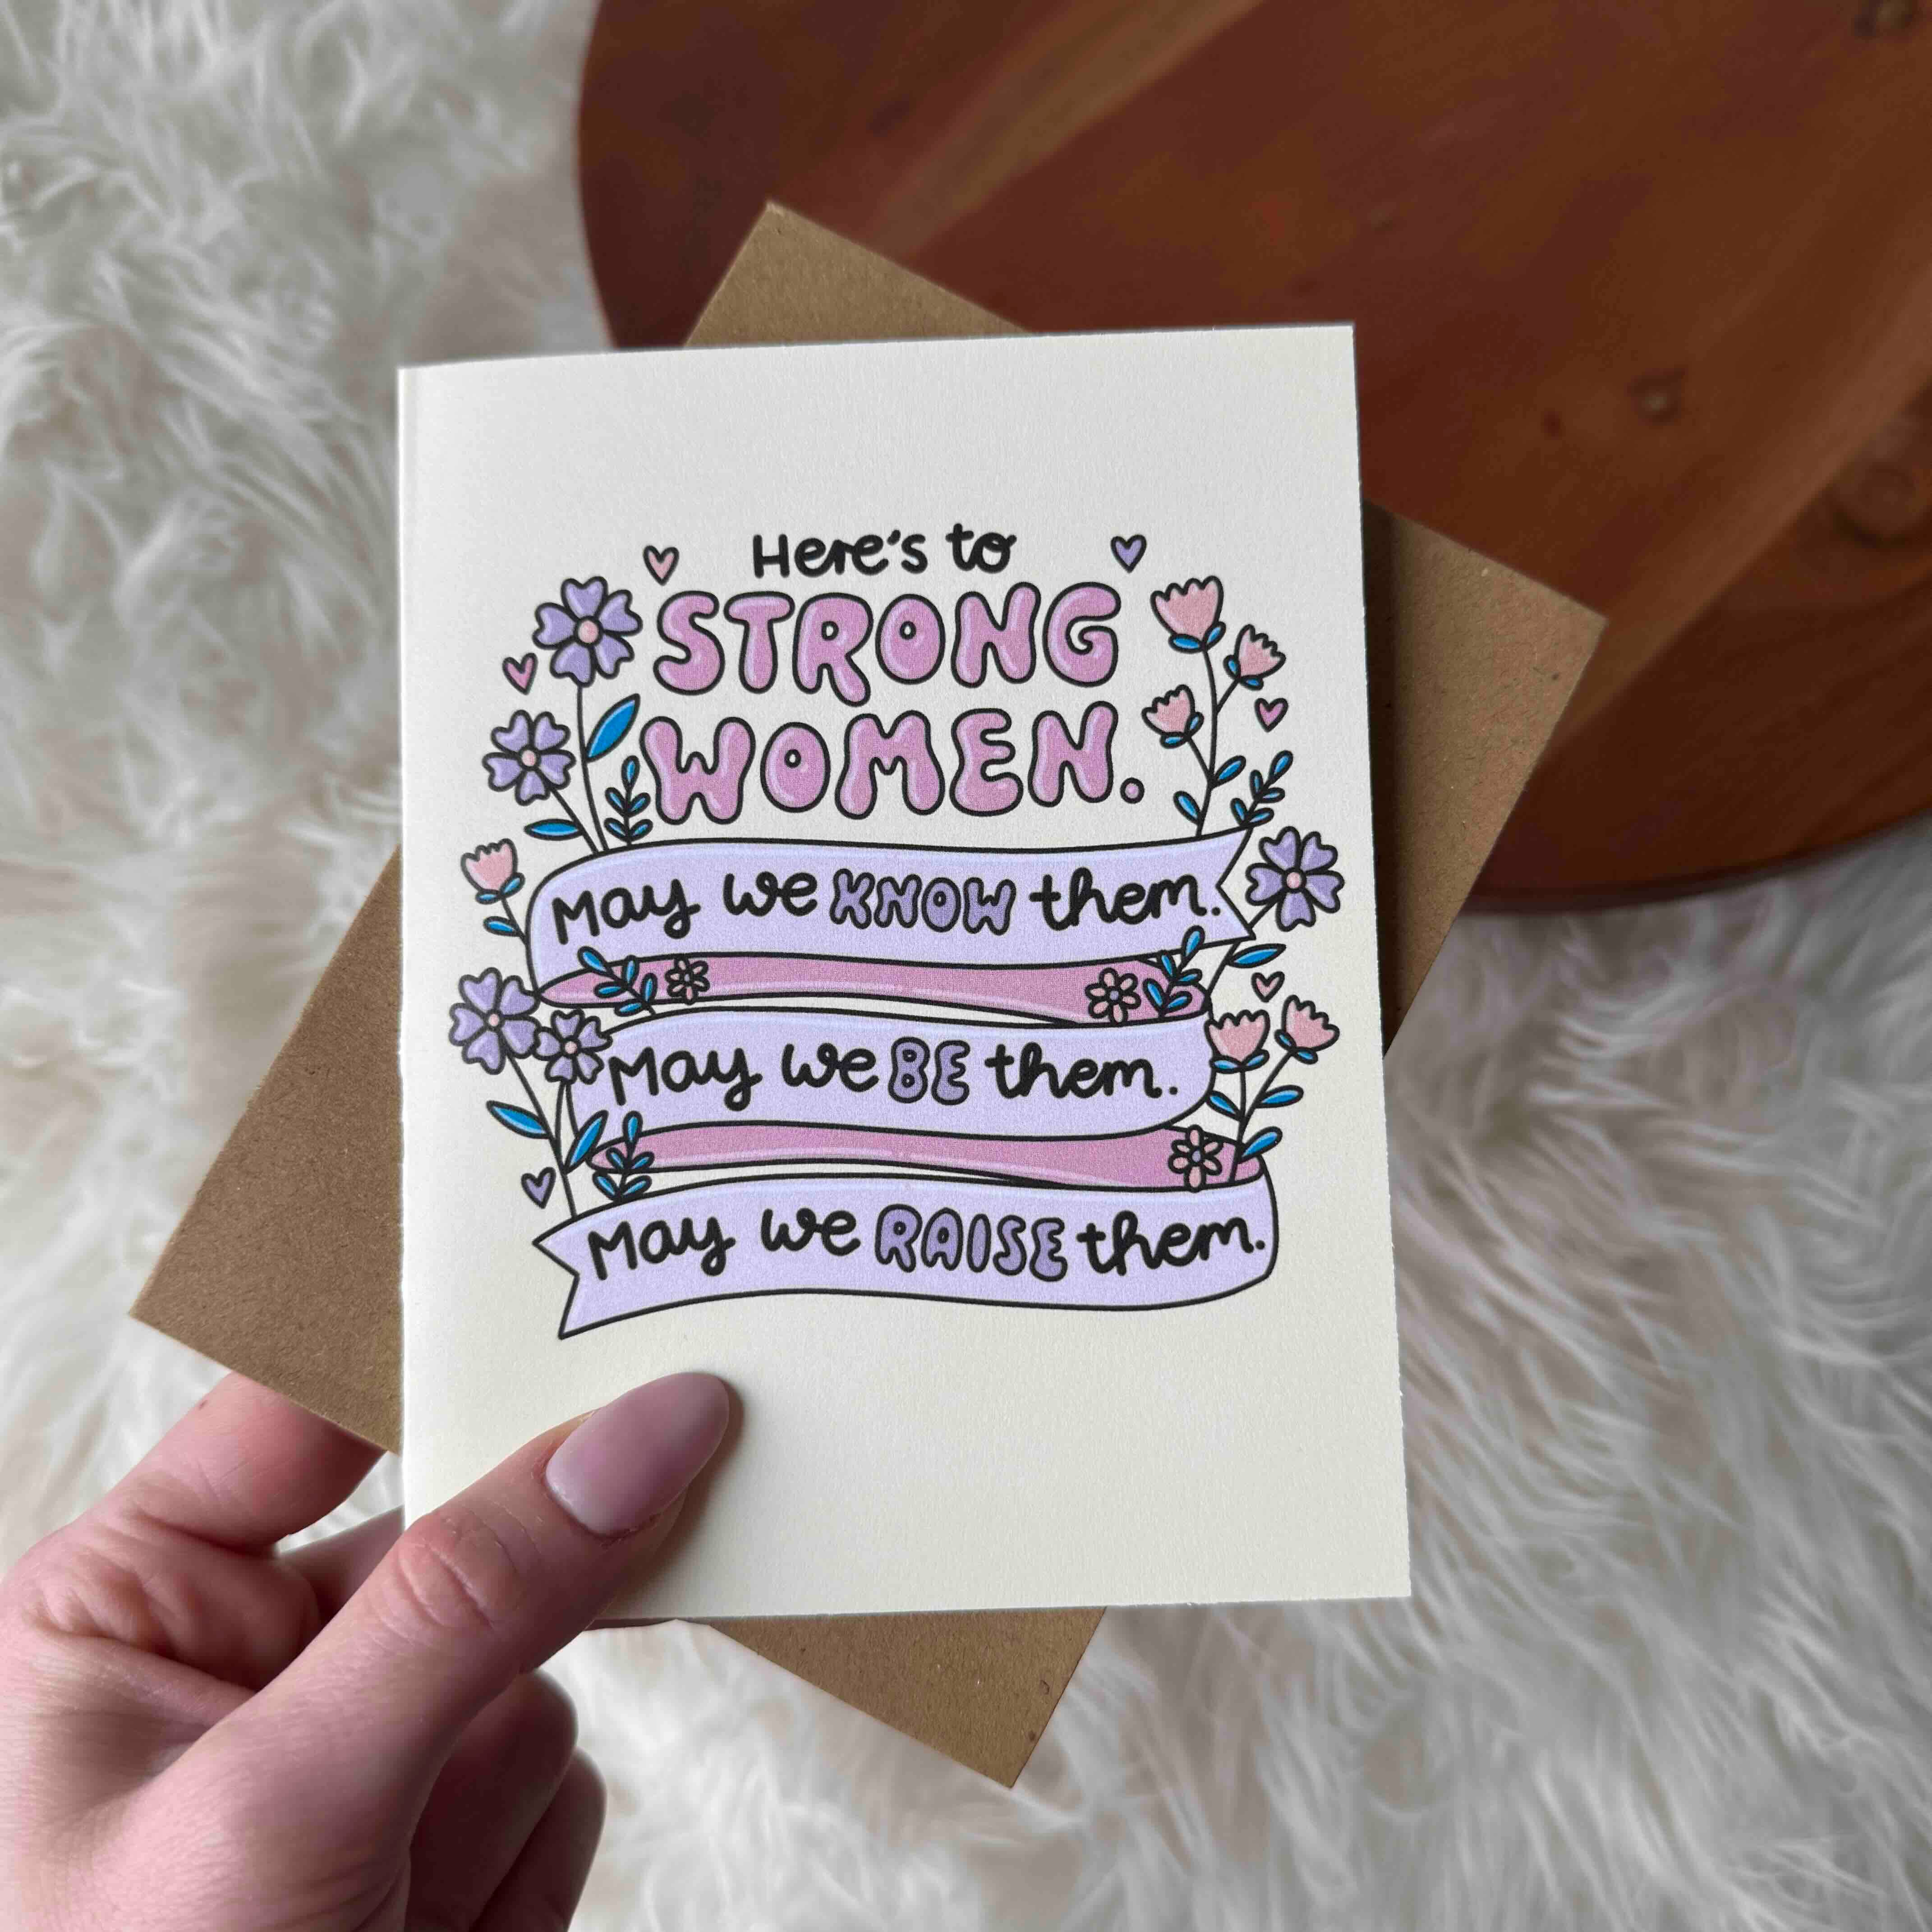 Here's to
STRONG
WOMEN.
May we KNOW them.
May we BE them.
May we RAISE them.